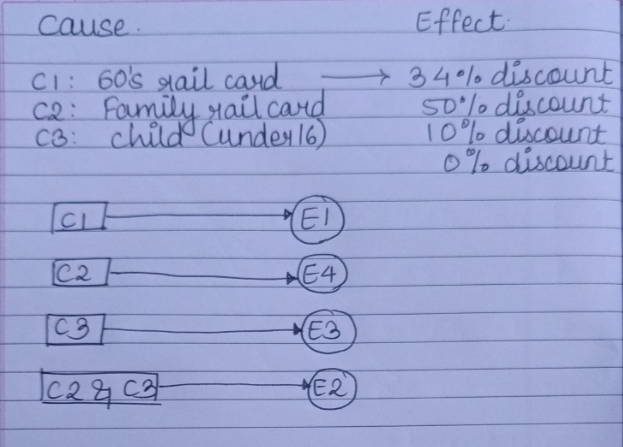 Cause. Effect.
C1: 60's rail card → 34% discount
C2: Family rail card 50% discount
C3: child (under 16) 10% discount
0% discount
C1 E1
C2 E4
C3 E3
C2 & C3 E2